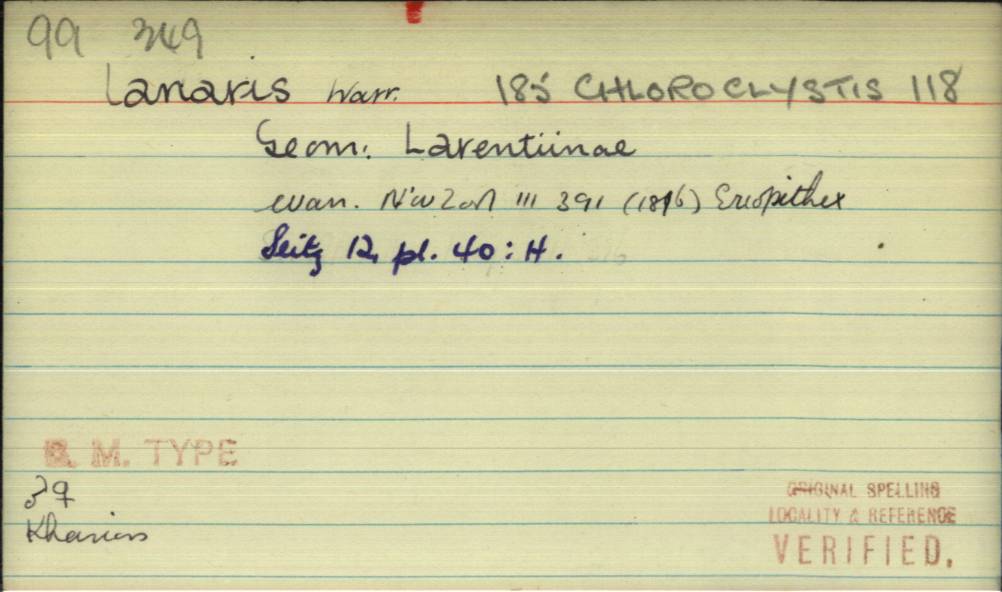 99 349
lanaris Warr. 185 CHLOROCLYSTIS 118
Geom. Larentiinae
Warr. Nov Zool III 391 (1896) Eriopithex
Seitz 12, pl. 40 : H.
B. M. TYPE
♂♀
Khasias
ORIGINAL SPELLING
LOCALITY & REFERENCE
VERIFIED.